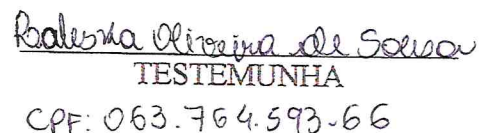 Raleska Oliveira de Sousa
TESTEMUNHA
CPF: 063.764.593-66